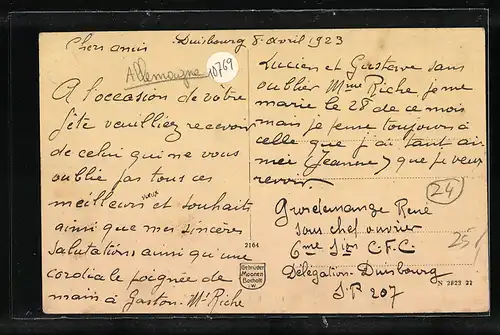 Chers amis Duisbourg 8 avril 1923
Allemagne
10769
A l'occasion de votre
fête veuilliez recevoir
de celui qui ne vous
oublie pas tous ces
meilleurs vœux et souhaits
ainsi que mes sincères
salutations ainsi qu'une
cordiale poignée de
main à Gaston. Mr Riche
Lucien et Gustave sans
oublier Mme Riche, je me
marie le 28 de ce mois
mais je pense toujours à
celle que j'ai tant aimée
(Jeanne) que je veux
revoir.
24
Grosdemange René
sous chef ouvrier
6me Son C.F.C.
Délégation Duisbourg
S.P 207
25
2164
Gebrüder
Moonen
Bocholt
i/W
N 2823 22